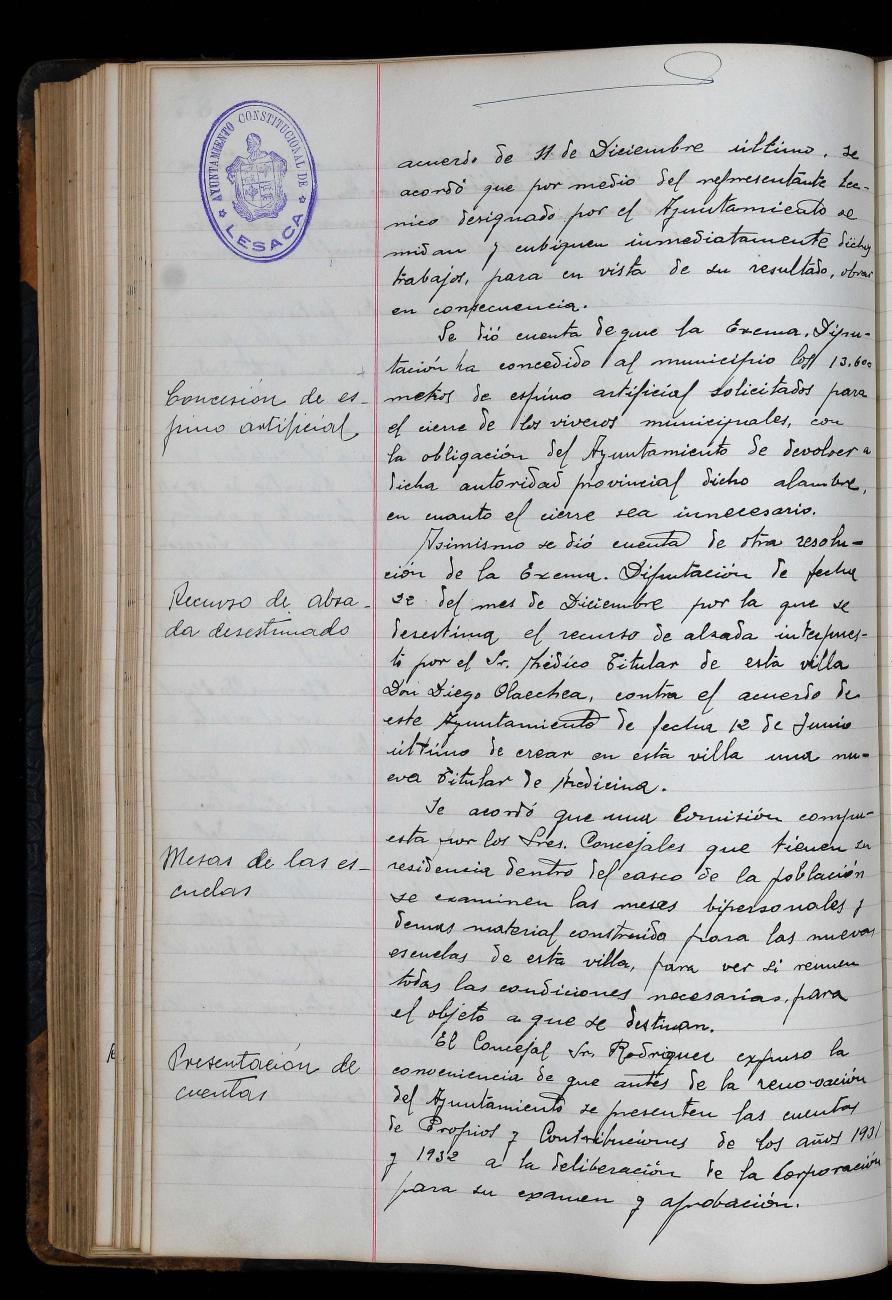 AYUNTAMIENTO CONSTITUCIONAL DE
LESACA
acuerdo de 11 de Diciembre último, se
acordó que por medio del representante tec-
nico designado por el Ayuntamiento se
midan y cubiquen inmediatamente dichos
trabajos, para en vista de su resultado, obrar
en consecuencia.
Se dió cuenta de que la Excma. Dipu-
tación ha concedido al municipio los 13.600
Concesión de es-
pino artificial
metros de espino artificial solicitados para
el cierre de los viveros municipales, con
la obligación del Ayuntamiento de devolver a
dicha autoridad provincial dicho alambre,
en cuanto el cierre sea innecesario.
Asimismo se dió cuenta de otra resolu-
ción de la Excma. Diputación de fecha
Recurso de alza-
da desestimado
22 del mes de Diciembre por la que se
desestima el recurso de alzada interpues-
to por el Sr. Médico Titular de esta villa
Don Diego Olaechea, contra el acuerdo de
este Ayuntamiento de fecha 12 de Junio
último de crear en esta villa una nu-
eva Titular de Medicina.
Se acordó que una Comisión compu-
esta por los Sres. Concejales que tienen su
Mesas de las es-
cuelas
residencia dentro del casco de la población
se examinen las mesas bipersonales y
demas material construido para las nuevas
escuelas de esta villa, para ver si reunen
todas las condiciones necesarias, para
el objeto a que se destinan.
El Concejal Sr. Rodriguez expuso la
Presentación de
cuentas
conveniencia de que antes de la renovación
del Ayuntamiento se presenten las cuentas
de Propios y Contribuciones de los años 1931
y 1932 a la deliberación de la Corporación
para su examen y aprobación.